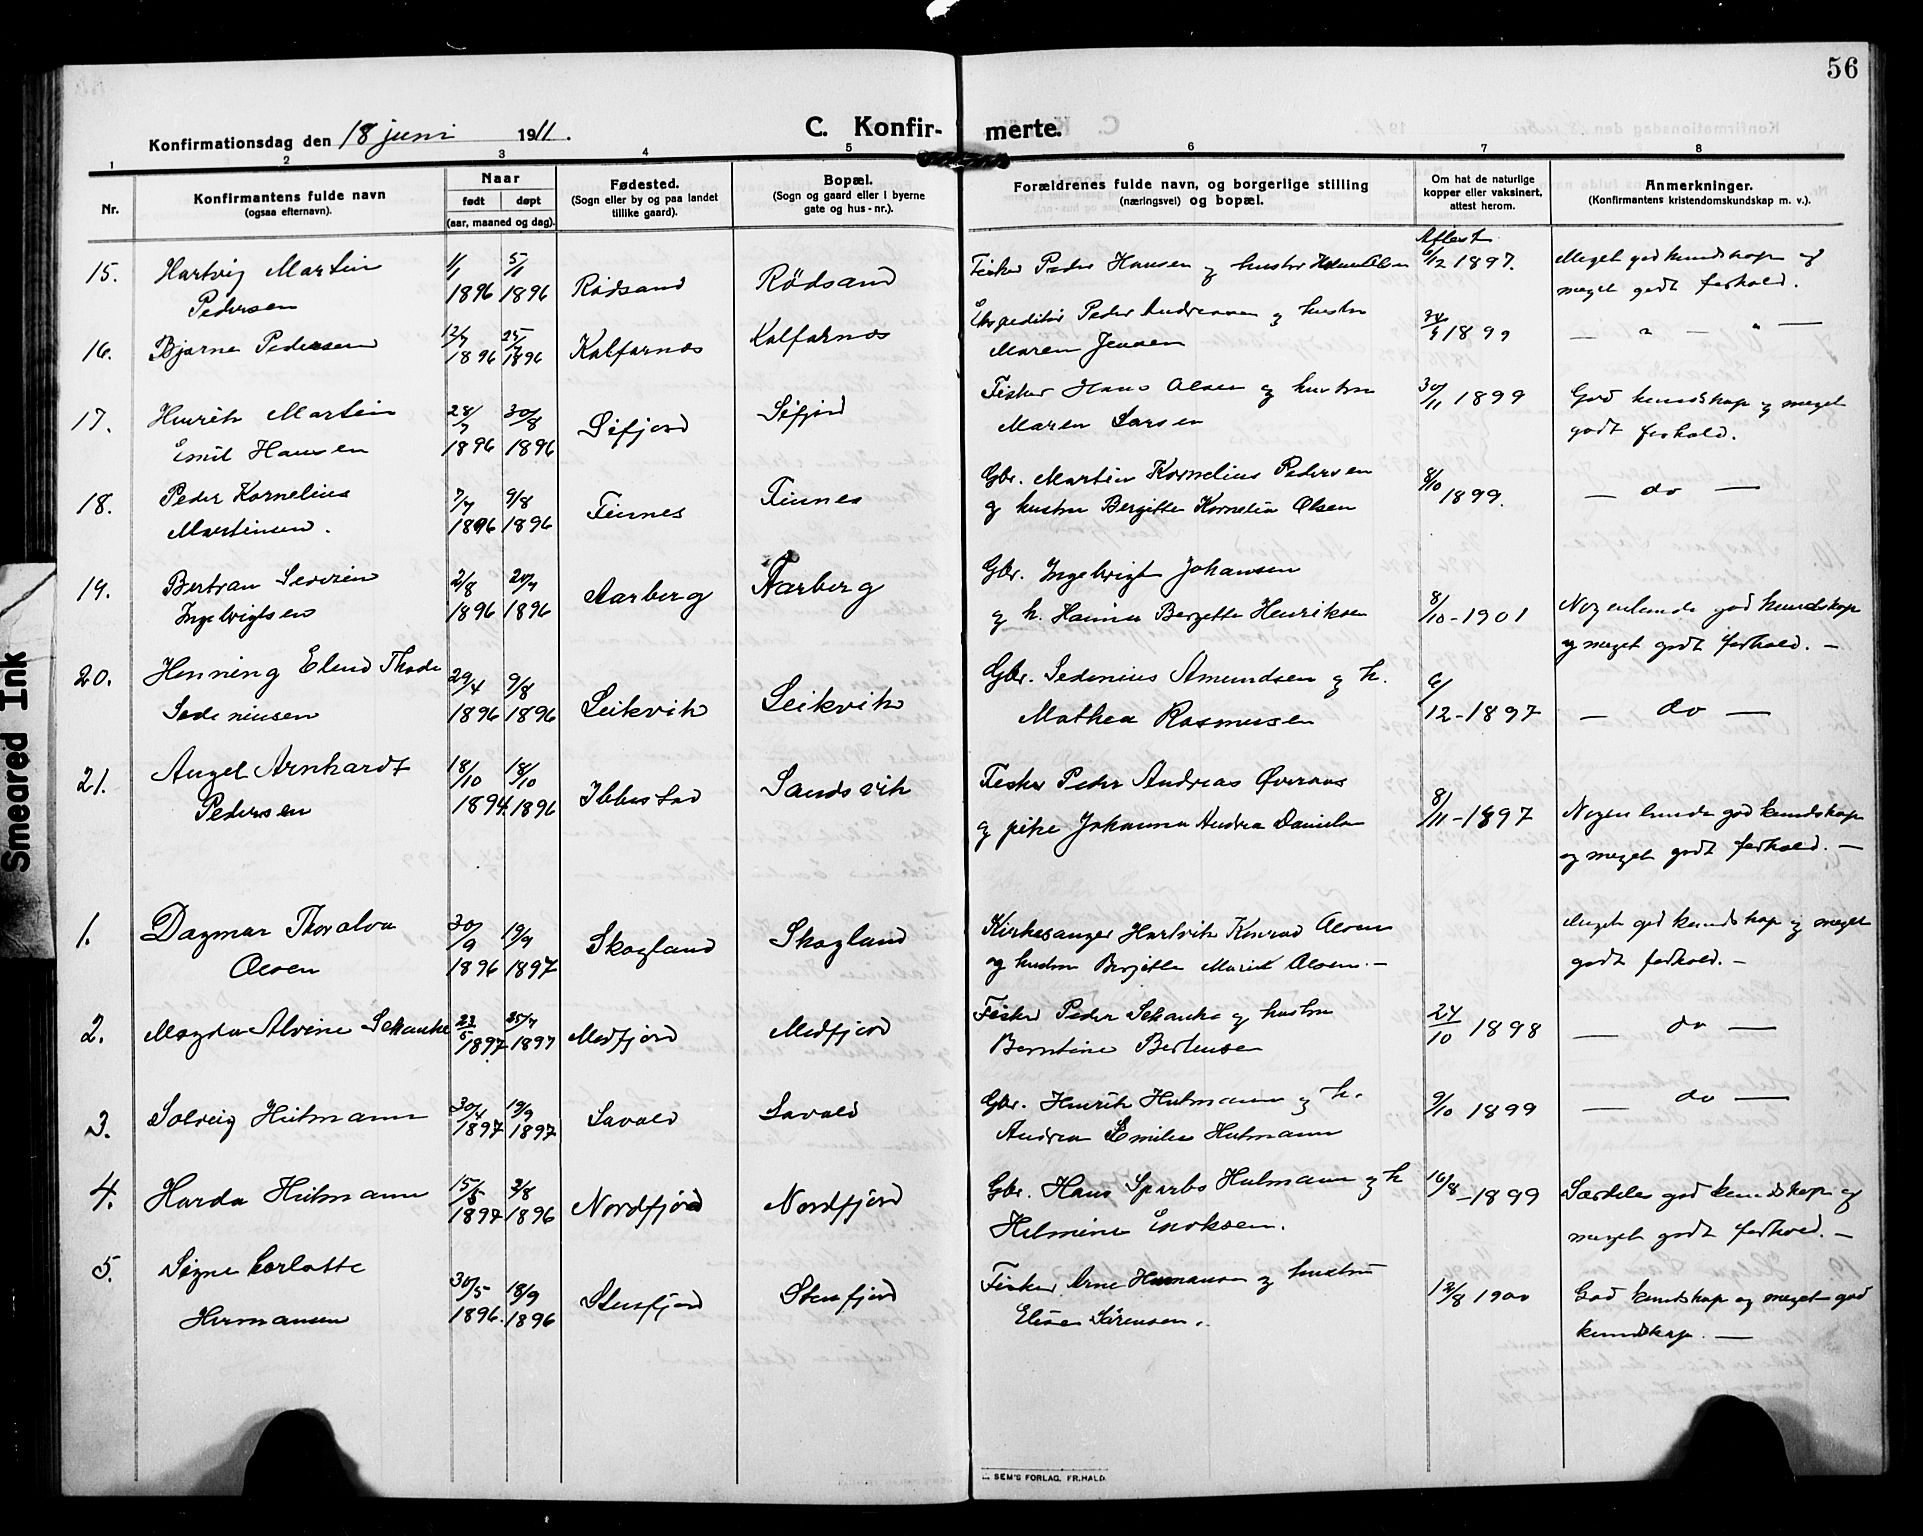 56
Konfirmationsdag den 18 juni 1911.
C. Konfir- merte.
1 2 3 4 5 6 7 8
Nr.
Konfirmantens fulde navn
(ogsaa efternavn).
Naar
født døpt
(aar, maaned og dag).
Fødested.
(Sogn eller by og paa landet
tillike gaard).
Bopæl.
(Sogn og gaard eller i byerne
gate og hus-nr.).
Forældrenes fulde navn, og borgerlige stilling
(næringsvei) og bopæl.
Om hat de naturlige
kopper eller vaksinert,
attest herom.
Anmerkninger.
(Konfirmantens kristendomskundskap m. v.).
15. Hartvig Martin
Pedersen
1/1 1896
5/1 1896
Rödsand
Rödsand
Fisker Peder Hansen og hustru
Attest
6/12 1897.
Meget god kundskap og
meget godt forhold.
16. Bjarne Pedersen
12/7 1896
1896
Kalfarnes
Kalfarnes
Ekspeditör Peder Andreasen og hustru
Maren Jensen
1899
— " — " —
17. Henrik Martin
Emil Hansen
28/7 1896
30/8 1896
Sifjord
Sifjord
Fisker Hans Olsen og hustru
Maren Larsen
30/11 1899
God kundskap og meget
godt forhold.
18. Peder Kornelius
Martinsen.
7/7 1896
9/8 1896
Finnes
Finnes
Gbr. Martin Kornelius Pedersen
og hustru Bergitte Kornelia Olsen
8/10 1899.
— do —
19. Bertran Severin
Ingebrigtsen
2/8 1896
1896
Aarberg
Aarberg
Gbr. Ingebrigt Johansen
og h. Hanna Bergitte Henriksen
8/10-1901
Nogenlunde god kundskap
og meget godt forhold. —
20. Henning Elend Thode
Sedeniusen
29/4 1896
9/8 1896
Leikvik
Leikvik
Gbr. Sedenius Amundsen og h.
Mathea Rasmussen
6/12-1897
— do —
21. Angel Arnhardt
Pedersen
18/10 1894.
18/10 1896
Ibbestad
Sandsvik
Fisker Peder Andreas Øveraas
og pike Johanna Andrea Daniels
8/11-1897
Nogenlunde god kundskap
og meget godt forhold. —
1. Dagmar Thoralva
Olsen
30/9 1896
19/9 1897
Skogland
Skogland
Kirkesanger Hartvik Konrad Olsen
og hustru Bergitte Marie Olsen. —
Meget god kundskap og meget
godt forhold. —
2. Magda Alvine Schanke
23/5 1897
25/7 1897
Medfjord
Medfjord
Fisker Peder Schanke og hustru
Berntine Bertheusen
24/10 1898
— do —
3. Solveig Hutmann
30/4 1897
19/9 1897
Lavold
Lavold
Gbr. Henrik Hutmann og h.
Andrea Emilie Hutmann
9/10 1899
— do —
4. Harda Hutmann
15/5 1897
2/8 1896
Nordfjord
Nordfjord
Gbr. Hans Hutmann og h
Helmine Enoksen.
16/8-1899
Særdeles god kundskap og
meget godt forhold. —
5. Signe Carlotte
Hermansen
30/5 1896.
18/9 1896
Stensfjord
Stensfjord
Fisker Arne Hermansen og hustru
Elise Sörensen.
12/8 1900
God kundskap og meget god
kundskap. —
SEM'S FORLAG, FR.HALD.
Smeared Ink